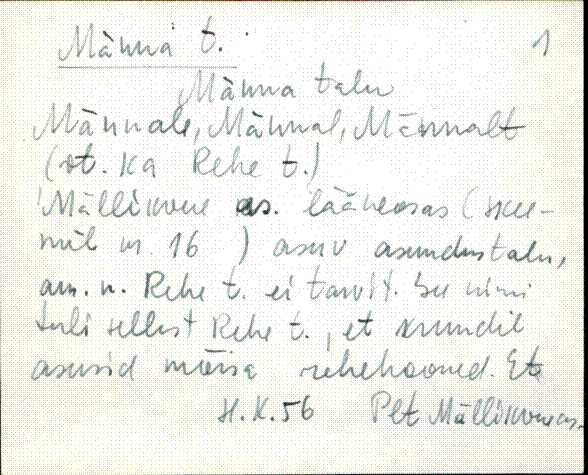 Männa t. 1
Männa talu
Männale, Männal, Männalt
(vt. ka Rehe t.)
Mällikvere as. lääneosas (skee-
mil nr. 16 ) asuv asundustalu,
am. n. Rehe t. ei tarvit. See nimi
tuli sellest Rehe t., et krundil
asusid mõisa rehehooned. Et
H.K.56 Plt Mällikvere as.